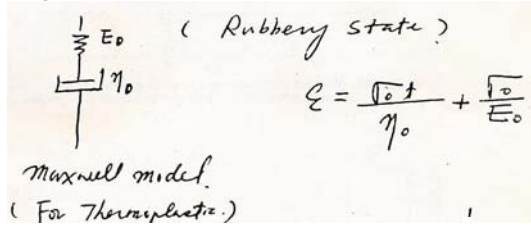 E₀ ( Rubbery state )
η₀
ε = σ₀ t / η₀ + σ₀ / E₀
Maxwell model.
( For Thermoplastic. )